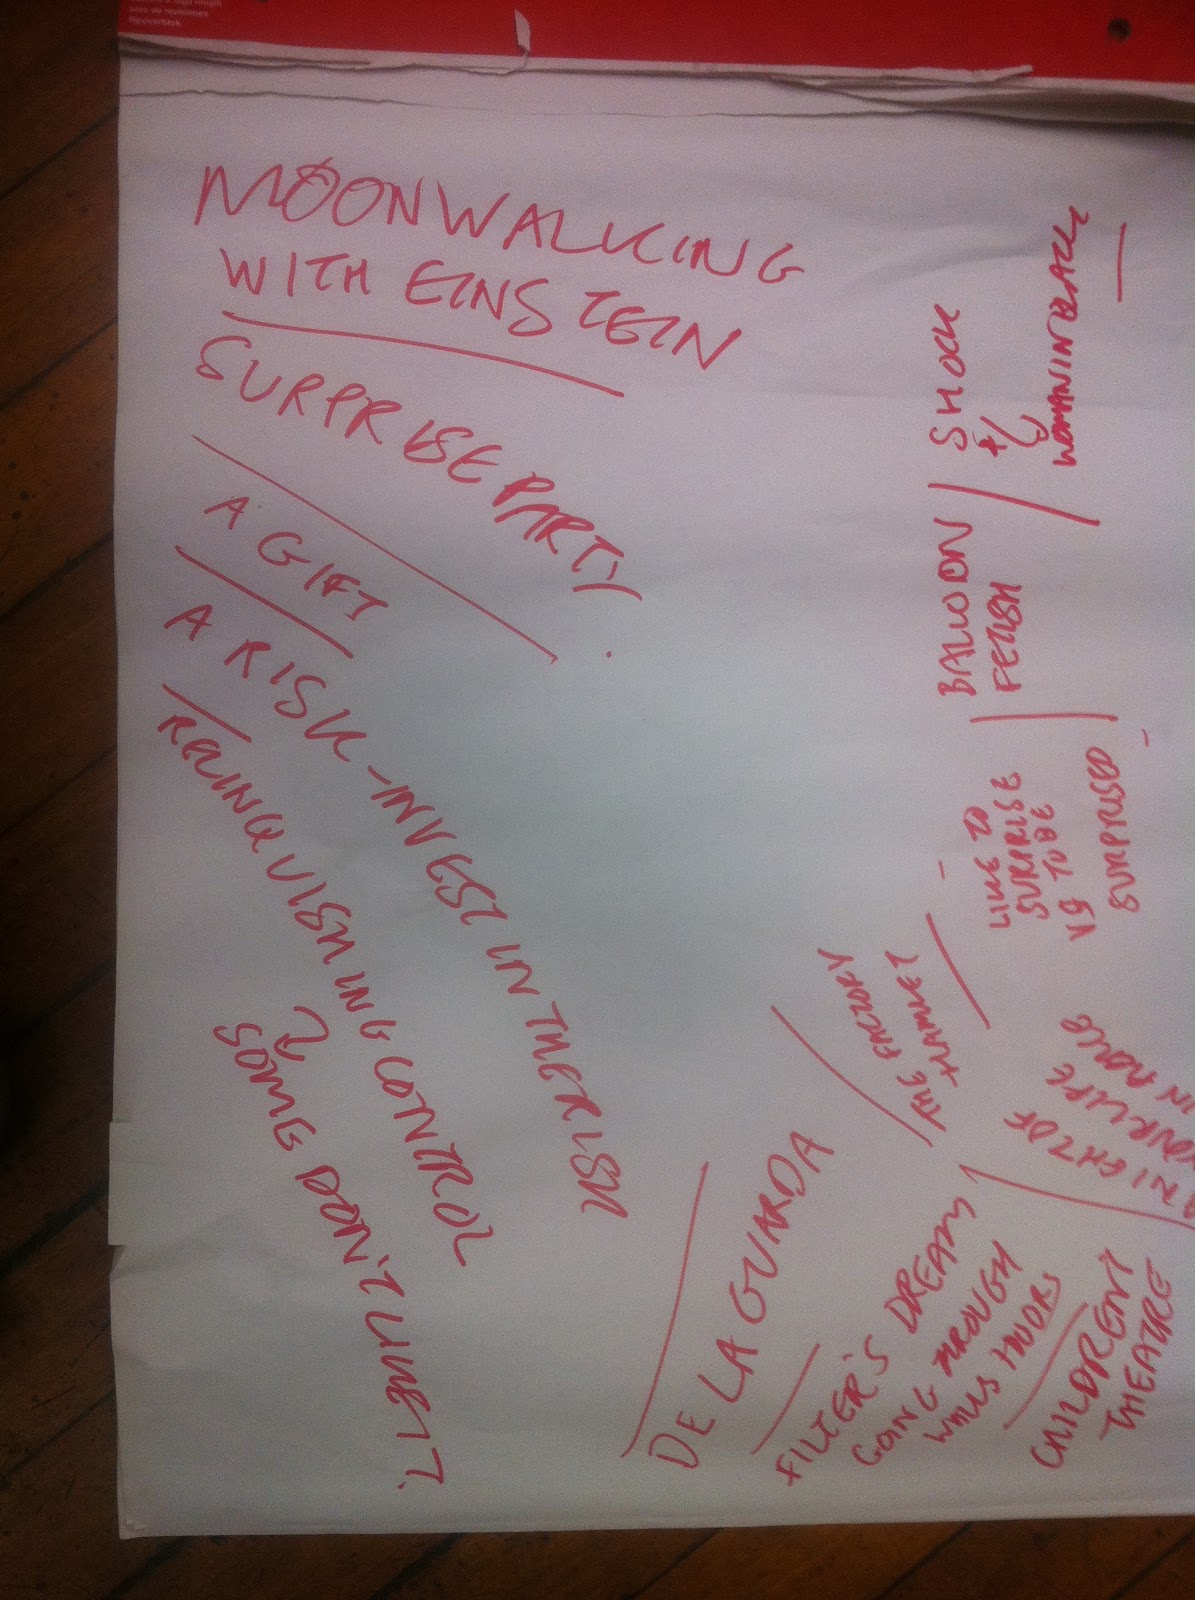 MOONWALKING
WITH EINSTEIN
SURPRISE PARTY!
A GIFT
A RISK - INVEST IN THE RISK
RELINQUISHING CONTROL
SOME DON'T LIKE IT.
DE LA GUARDA
FILTER'S DREAM
GOING THROUGH
WALLS / DOORS
CHILDREN'S
THEATRE
NIGHT OF
YOUR LIFE
IN
THE FACTORY
+ HAMLET
LIKE TO
SURPRISE
VS TO BE
SURPRISED
BALLOON
FETISH
SHOCK
+
WOMAN IN BLACK